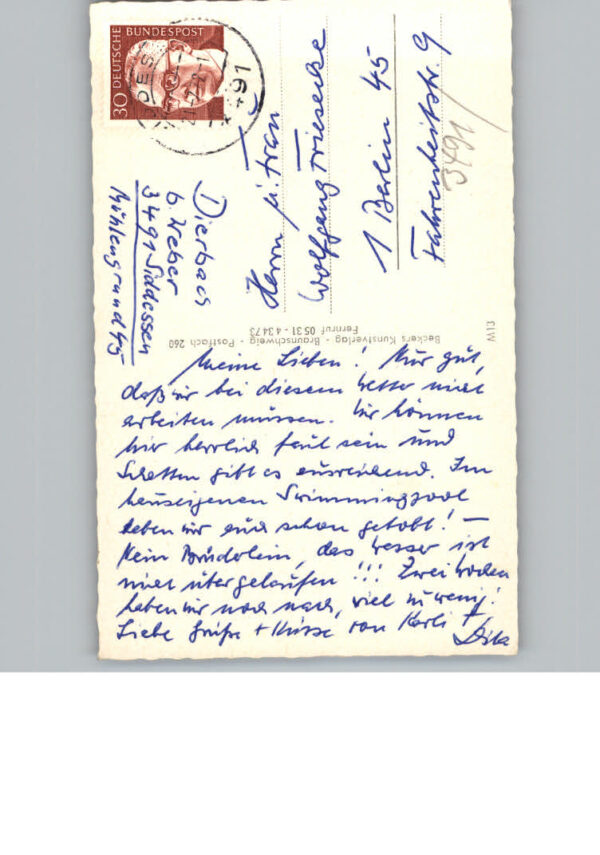 30 DEUTSCHE BUNDESPOST
3491
Herrn u. Frau
Wolfgang Friesecke
1 Berlin 45
Fahrenheitstr. 9
3491
Dierbach
b. Weber
3491 Siddessen
Mühlengrund 45
Beckers Kunstverlag - Braunschweig - Postfach 260
Fernruf 05 31 - 4 34 73
M13
Meine Lieben! Nur gut,
daß wir bei diesem Wetter nicht
arbeiten müssen. Wir können
hier herrlich faul sein und
Schatten gibt es ausreichend. Im
hauseigenen Swimmingpool
haben wir auch schon getobt! —
Kein Brüderlein, das Wasser ist
nicht übergelaufen!!! Zwei Wochen
haben wir noch nach, viel zu wenig!
Liebe Grüße + Küsse von Karli +